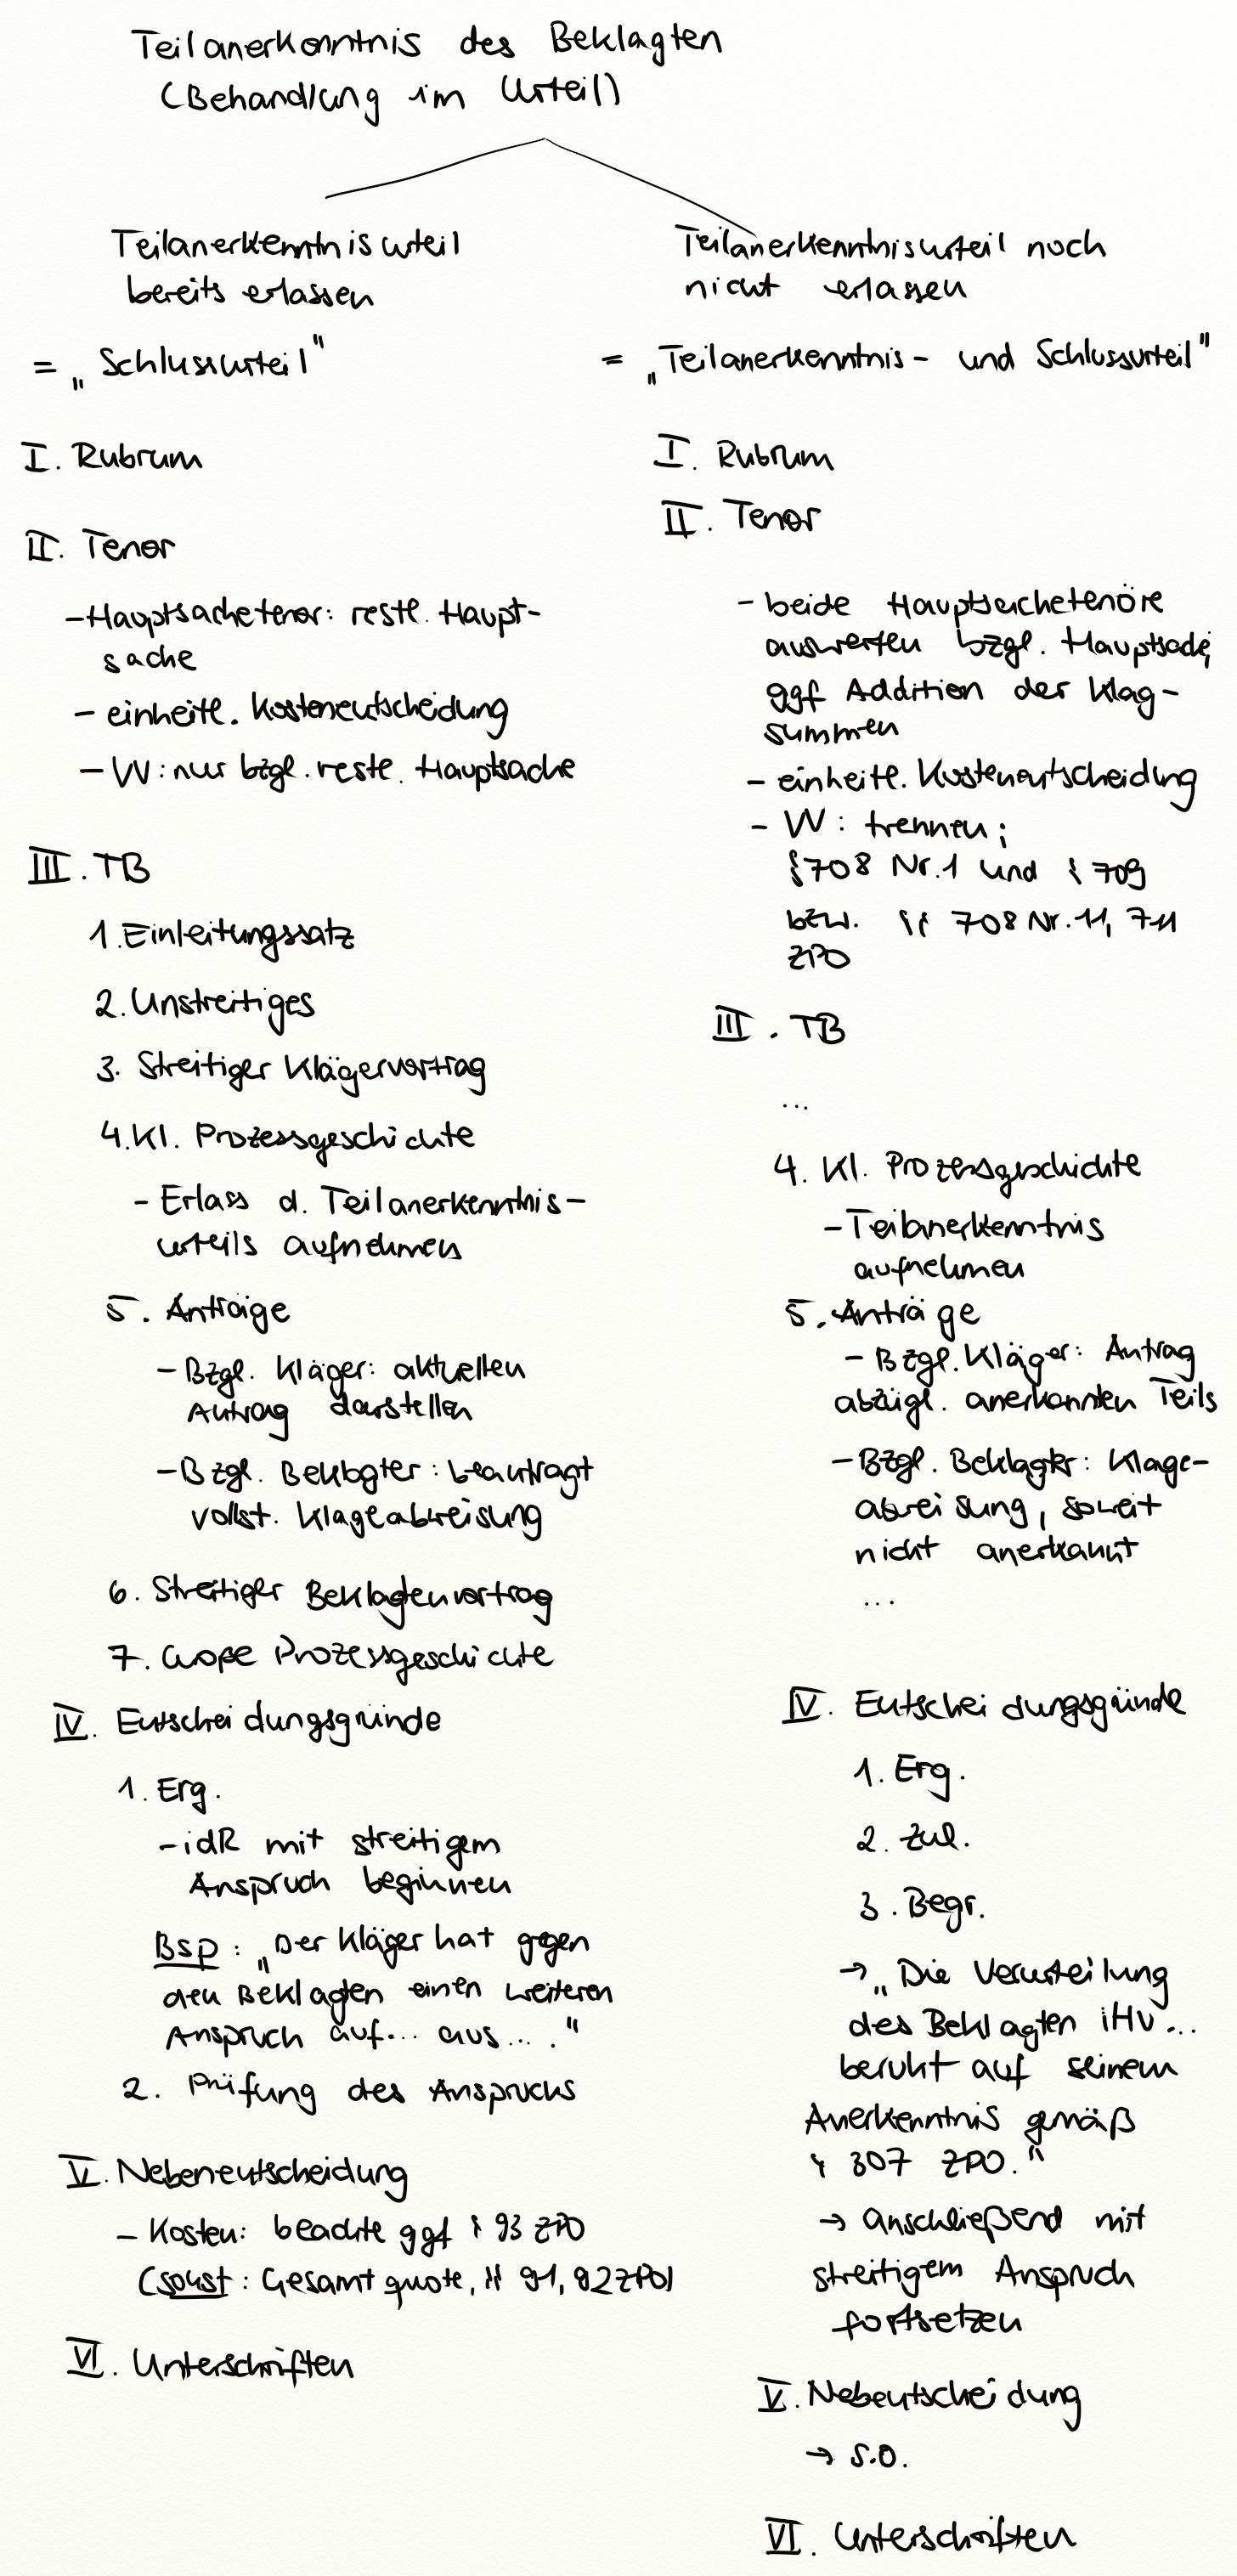 Teilanerkenntnis des Beklagten
(Behandlung im Urteil)
Teilanerkenntnisurteil
bereits erlassen
= „Schlussurteil"
I. Rubrum
II. Tenor
-Hauptsachetenor: restl. Haupt-
sache
- einheitl. Kostenentscheidung
- VV: nur bzgl. restl. Hauptsache
III. TB
1. Einleitungssatz
2. Unstreitiges
3. Streitiger Klägervortrag
4. Kl. Prozessgeschichte
- Erlass d. Teilanerkenntnis-
urteils aufnehmen
5. Anträge
- Bzgl. Kläger: aktuellen
Antrag darstellen
- Bzgl. Beklagter: beantragt
vollst. Klageabweisung
6. Streitiger Beklagtenvortrag
7. Große Prozessgeschichte
IV. Entscheidungsgründe
1. Erg.
- idR mit streitigem
Anspruch beginnen
Bsp: „Der Kläger hat gegen
den Beklagten einen weiteren
Anspruch auf... aus...."
2. Prüfung des Anspruchs
V. Nebenentscheidung
- Kosten: beachte ggf § 93 ZPO
(sonst: Gesamtquote, §§ 91, 92 ZPO)
VI. Unterschriften
Teilanerkenntnisurteil noch
nicht erlassen
= „Teilanerkenntnis- und Schlussurteil"
I. Rubrum
II. Tenor
- beide Hauptsachetenöre
auswerfen bzgl. Hauptsache,
ggf Addition der Klag-
summen
- einheitl. Kostenentscheidung
- VV: trennen;
§ 708 Nr. 1 und § 709
bzw. §§ 708 Nr. 11, 711
ZPO
III. TB
...
4. Kl. Prozessgeschichte
- Teilanerkenntnis
aufnehmen
5. Anträge
- Bzgl. Kläger: Antrag
abzügl. anerkannten Teils
- Bzgl. Beklagter: Klage-
abweisung, soweit
nicht anerkannt
...
IV. Entscheidungsgründe
1. Erg.
2. Zul.
3. Begr.
→ „Die Verurteilung
des Beklagten iHv...
beruht auf seinem
Anerkenntnis gemäß
§ 307 ZPO."
→ anschließend mit
streitigem Anspruch
fortsetzen
V. Nebentscheidung
→ s.o.
VI. Unterschriften